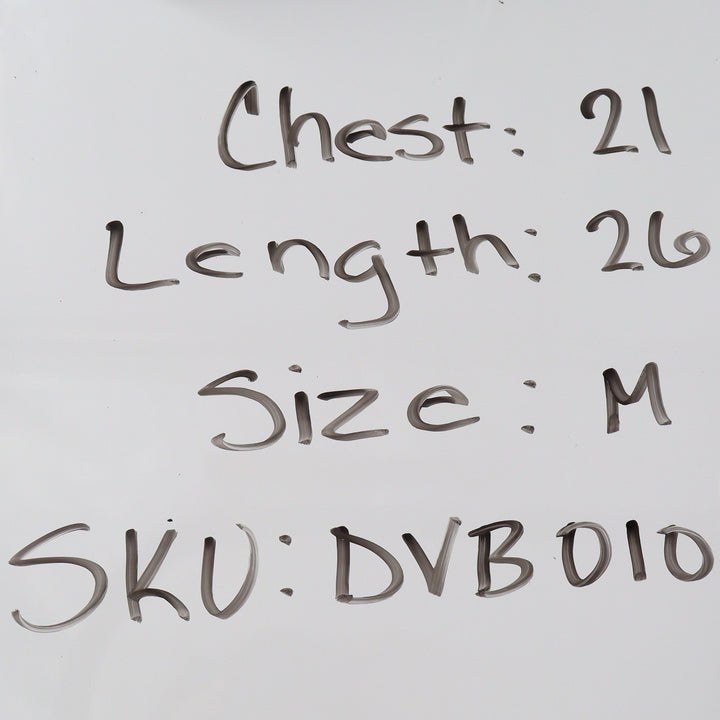 Chest: 21
Length: 26
Size: M
SKU: DVB010